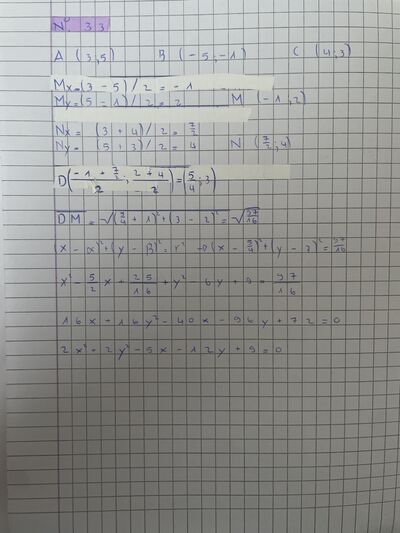 N° 33
A (3;5) B (-5;-1) C (4;3)
Mx = (3 - 5) / 2 = -1
My = (5 - 1) / 2 = 2 M (-1;2)
Nx = (3 + 4) / 2 = 7/2
Ny = (5 + 3) / 2 = 4 N (7/2;4)
D((-1 + 7/2)/2 ; (2 + 4)/2) = (5/4 ; 3)
DM = √((5/4 + 1)² + (3 - 2)²) = √(97/16)
(x - α)² + (y - β)² = r² → (x - 5/4)² + (y - 3)² = 97/16
x² - 5/2 x + 25/16 + y² - 6y + 9 = 97/16
16x + 16y² - 40x - 96y + 72 = 0
2x² + 2y² - 5x - 12y + 9 = 0